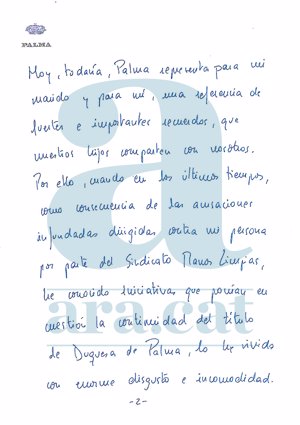 PALMA
Hoy, todavía, Palma representa para mi
marido y para mí, una referencia de
fuertes e importantes recuerdos, que
nuestros hijos comparten con nosotros.
Por ello, cuando en los últimos tiempos,
como consecuencia de las acusaciones
infundadas dirigidas contra mi persona
por parte del Sindicato Manos Limpias,
he conocido iniciativas que ponían en
cuestión la continuidad del título
de Duquesa de Palma, lo he vivido
con enorme disgusto e incomodidad.
-2-
a
ara.cat